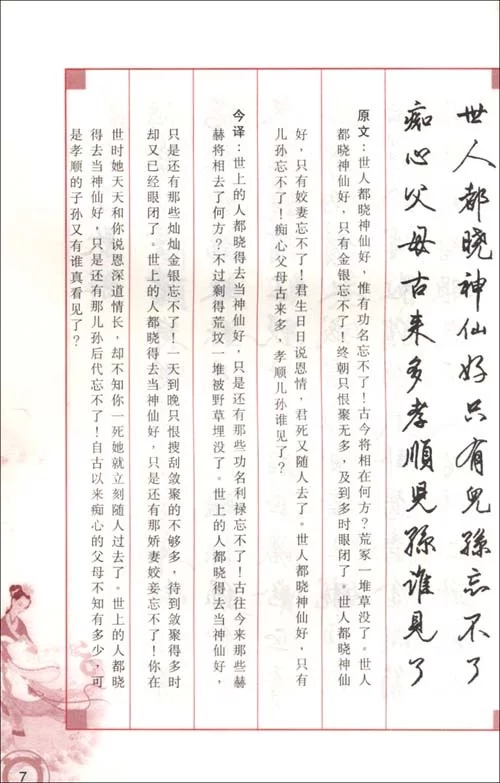 世人都晓神仙好只有兒孫忘不了
痴心父母古来多孝順兒孫谁見了
原文：世人都晓神仙好，惟有功名忘不了！古今将相在何方？荒冢一堆草没了。世人
都晓神仙好，只有金银忘不了！终朝只恨聚无多，及到多时眼闭了。世人都晓神仙
好，只有姣妻忘不了！君生日日说恩情，君死又随人去了。世人都晓神仙好，只有
儿孙忘不了！痴心父母古来多，孝顺儿孙谁见了？
今译：世上的人都晓得去当神仙好，只是还有那些功名利禄忘不了！古往今来那些赫
赫将相去了何方？不过剩得荒坟一堆被野草埋没了。世上的人都晓得去当神仙好，
只是还有那些灿灿金银忘不了！一天到晚只恨搜刮敛聚的不够多，待到敛聚得多时
却又已经眼闭了。世上的人都晓得去当神仙好，只是还有那娇妻姣妾忘不了！你在
世时她天天和你说恩深道情长，却不知你一死她就立刻随人过去了。世上的人都晓
得去当神仙好，只是还有那儿孙后代忘不了！自古以来痴心的父母不知有多少，可
是孝顺的子孙又有谁真看见了？
7